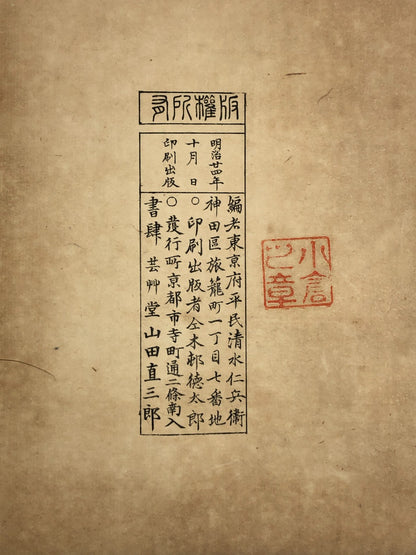 版權所有
明治廿四年
十月 日
印刷出版
編者東京府平民清水仁兵衞
神田區旅籠町一丁目七番地
○印刷出版者仝木邨德太郎
○發行所京都市寺町通二條南入
書肆 芸艸堂 山田直三郎
小倉
章